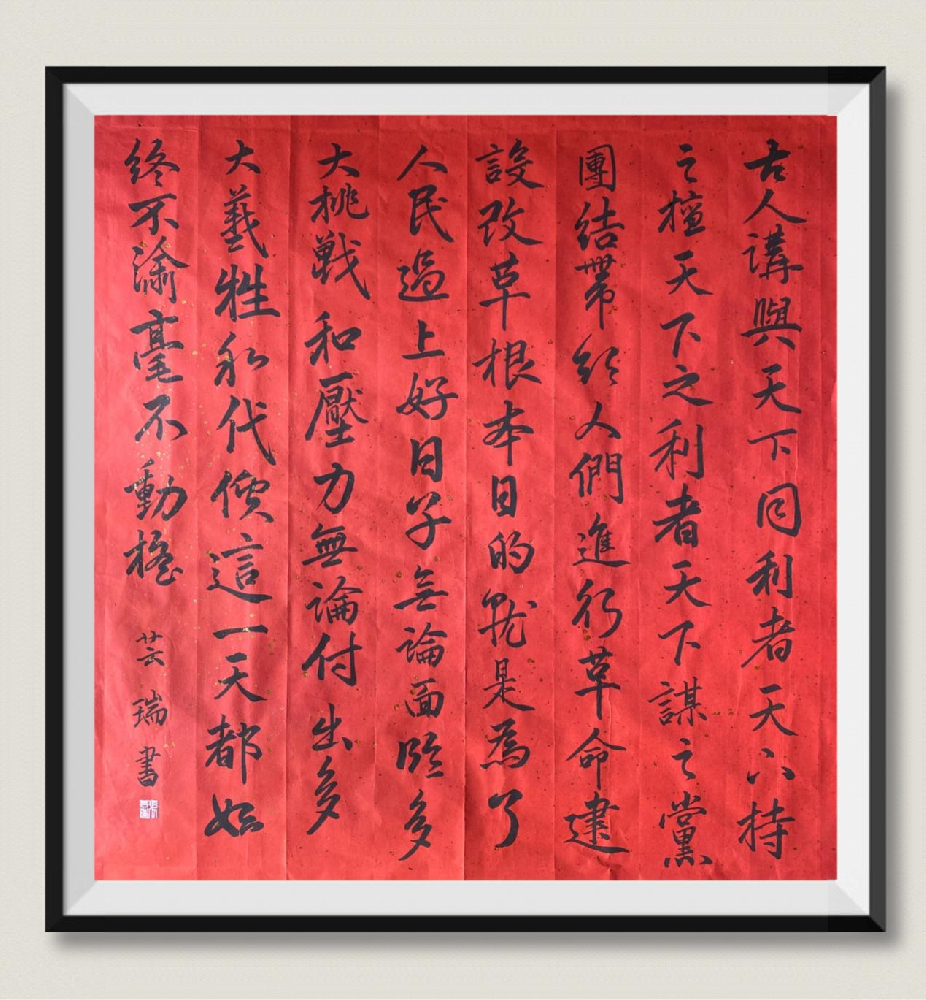 古人講與天下同利者天下持
之擅天下之利者天下謀之黨
團結帶領人們進行革命建
設改革根本目的就是為了
人民過上好日子無論面臨多
大挑戰和壓力無論付出多
大羲牲和代價這一天都始
終不渝毫不動搖
芸瑞書